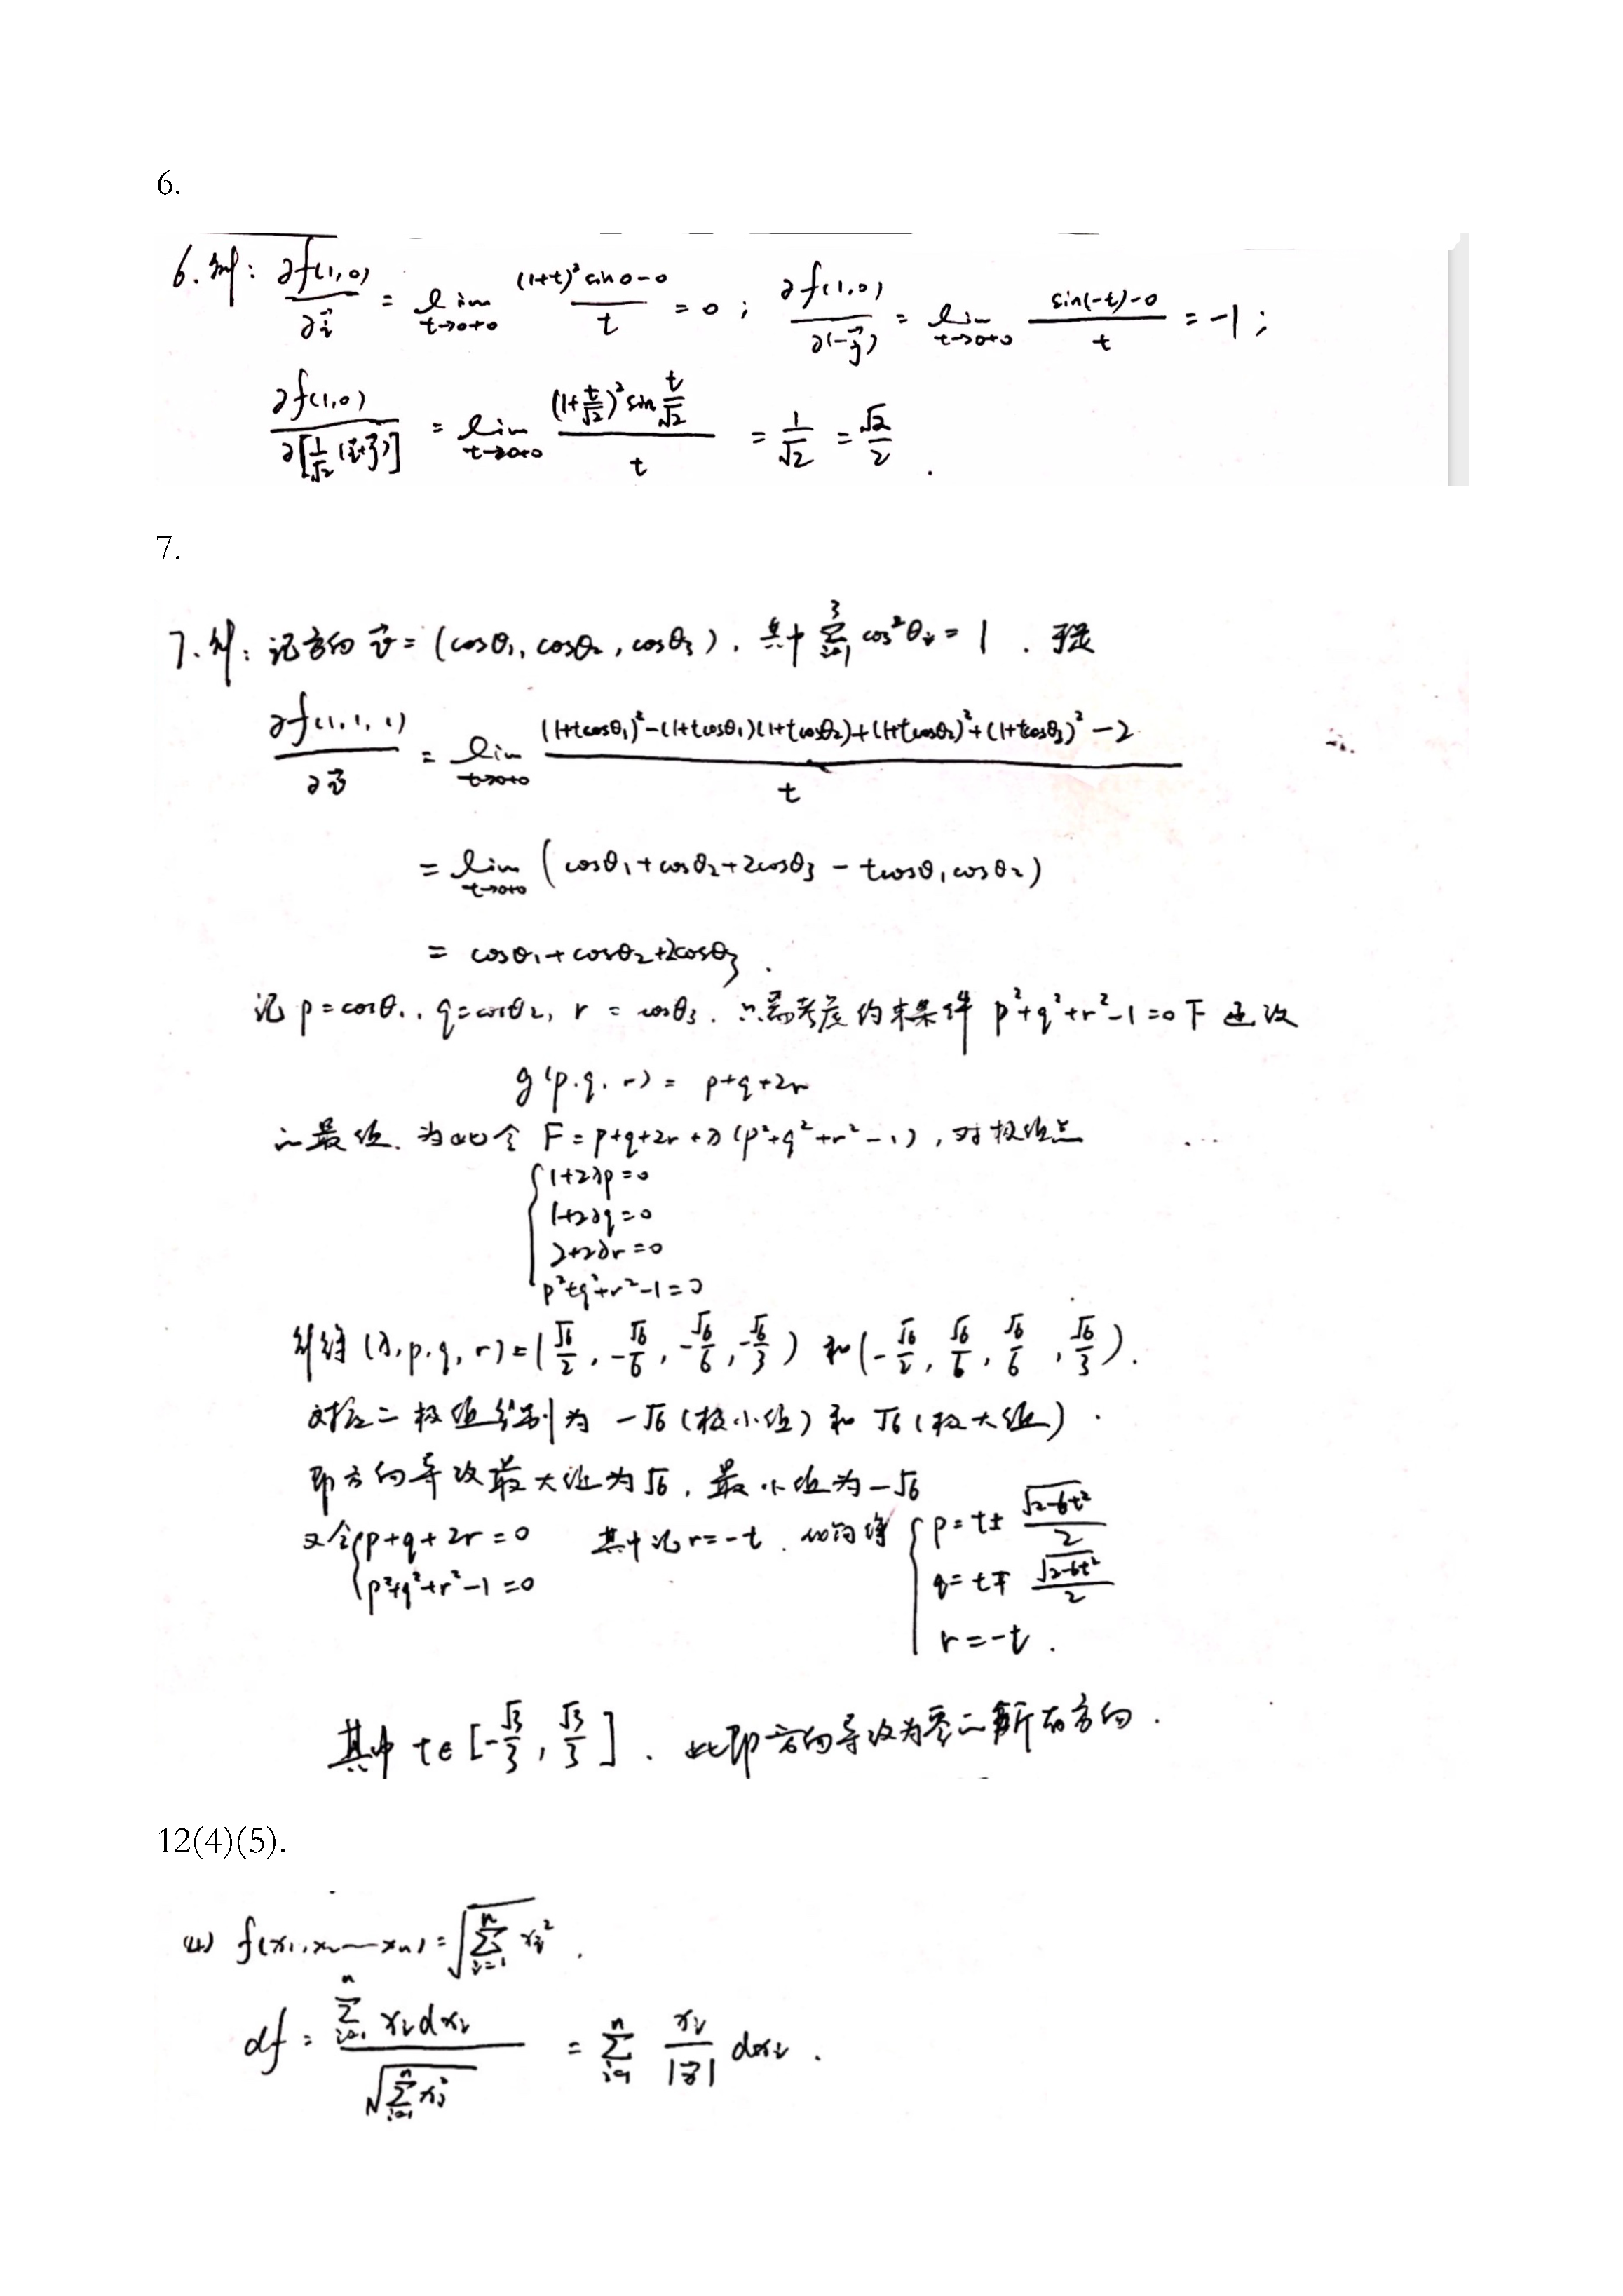 6.
6. 解: ∂f(1,0)/∂i⃗ = lim_{t→0+0} ((1+t)² sin0 − 0)/t = 0 ; ∂f(1,0)/∂(−j⃗) = lim_{t→0+0} (sin(−t)−0)/t = −1 ;
∂f(1,0)/∂[1/√2 (i⃗+j⃗)] = lim_{t→0+0} ((1+t/√2)² sin t/√2)/t = 1/√2 = √2/2 .
7.
7. 解: 记方向 v⃗ = (cosθ₁, cosθ₂, cosθ₃), 其中 ∑_{i=1}^{3} cos²θᵢ = 1 . 于是
∂f(1,1,1)/∂v⃗ = lim_{t→0+0} ((1+tcosθ₁)² − (1+tcosθ₁)(1+tcosθ₂) + (1+tcosθ₂)² + (1+tcosθ₃)² − 2)/t
= lim_{t→0+0} (cosθ₁+cosθ₂+2cosθ₃ − tcosθ₁cosθ₂)
= cosθ₁+cosθ₂+2cosθ₃ .
记 p=cosθ₁, q=cosθ₂, r=cosθ₃. 只需考虑约束条件 p²+q²+r²−1=0 下函数
g(p,q,r) = p+q+2r
的最值. 为此令 F=p+q+2r+λ(p²+q²+r²−1), 对极值点
{ 1+2λp=0
1+2λq=0
2+2λr=0
p²+q²+r²−1=0
解得 (λ,p,q,r)=(√6/2, −√6/6, −√6/6, −√6/3) 和 (−√6/2, √6/6, √6/6, √6/3).
对应的极值分别为 −√6 (极小值) 和 √6 (极大值) .
即方向导数最大值为√6, 最小值为−√6
又令 { p+q+2r=0 其中记 r=−t, 则可得 { p=t± √(2−6t²)/2
p²+q²+r²−1=0 q=t∓ √(2−6t²)/2
r=−t .
其中 t∈[−√3/3, √3/3] . 此即方向导数为零的所有方向 .
12(4)(5).
(4) f(x₁,x₂⋯xₙ)=√(∑_{i=1}^{n} xᵢ²) .
df = (∑_{i=1}^{n} xᵢdxᵢ)/√(∑_{i=1}^{n} xᵢ²) = ∑_{i=1}^{n} xᵢ/|x⃗| dxᵢ .